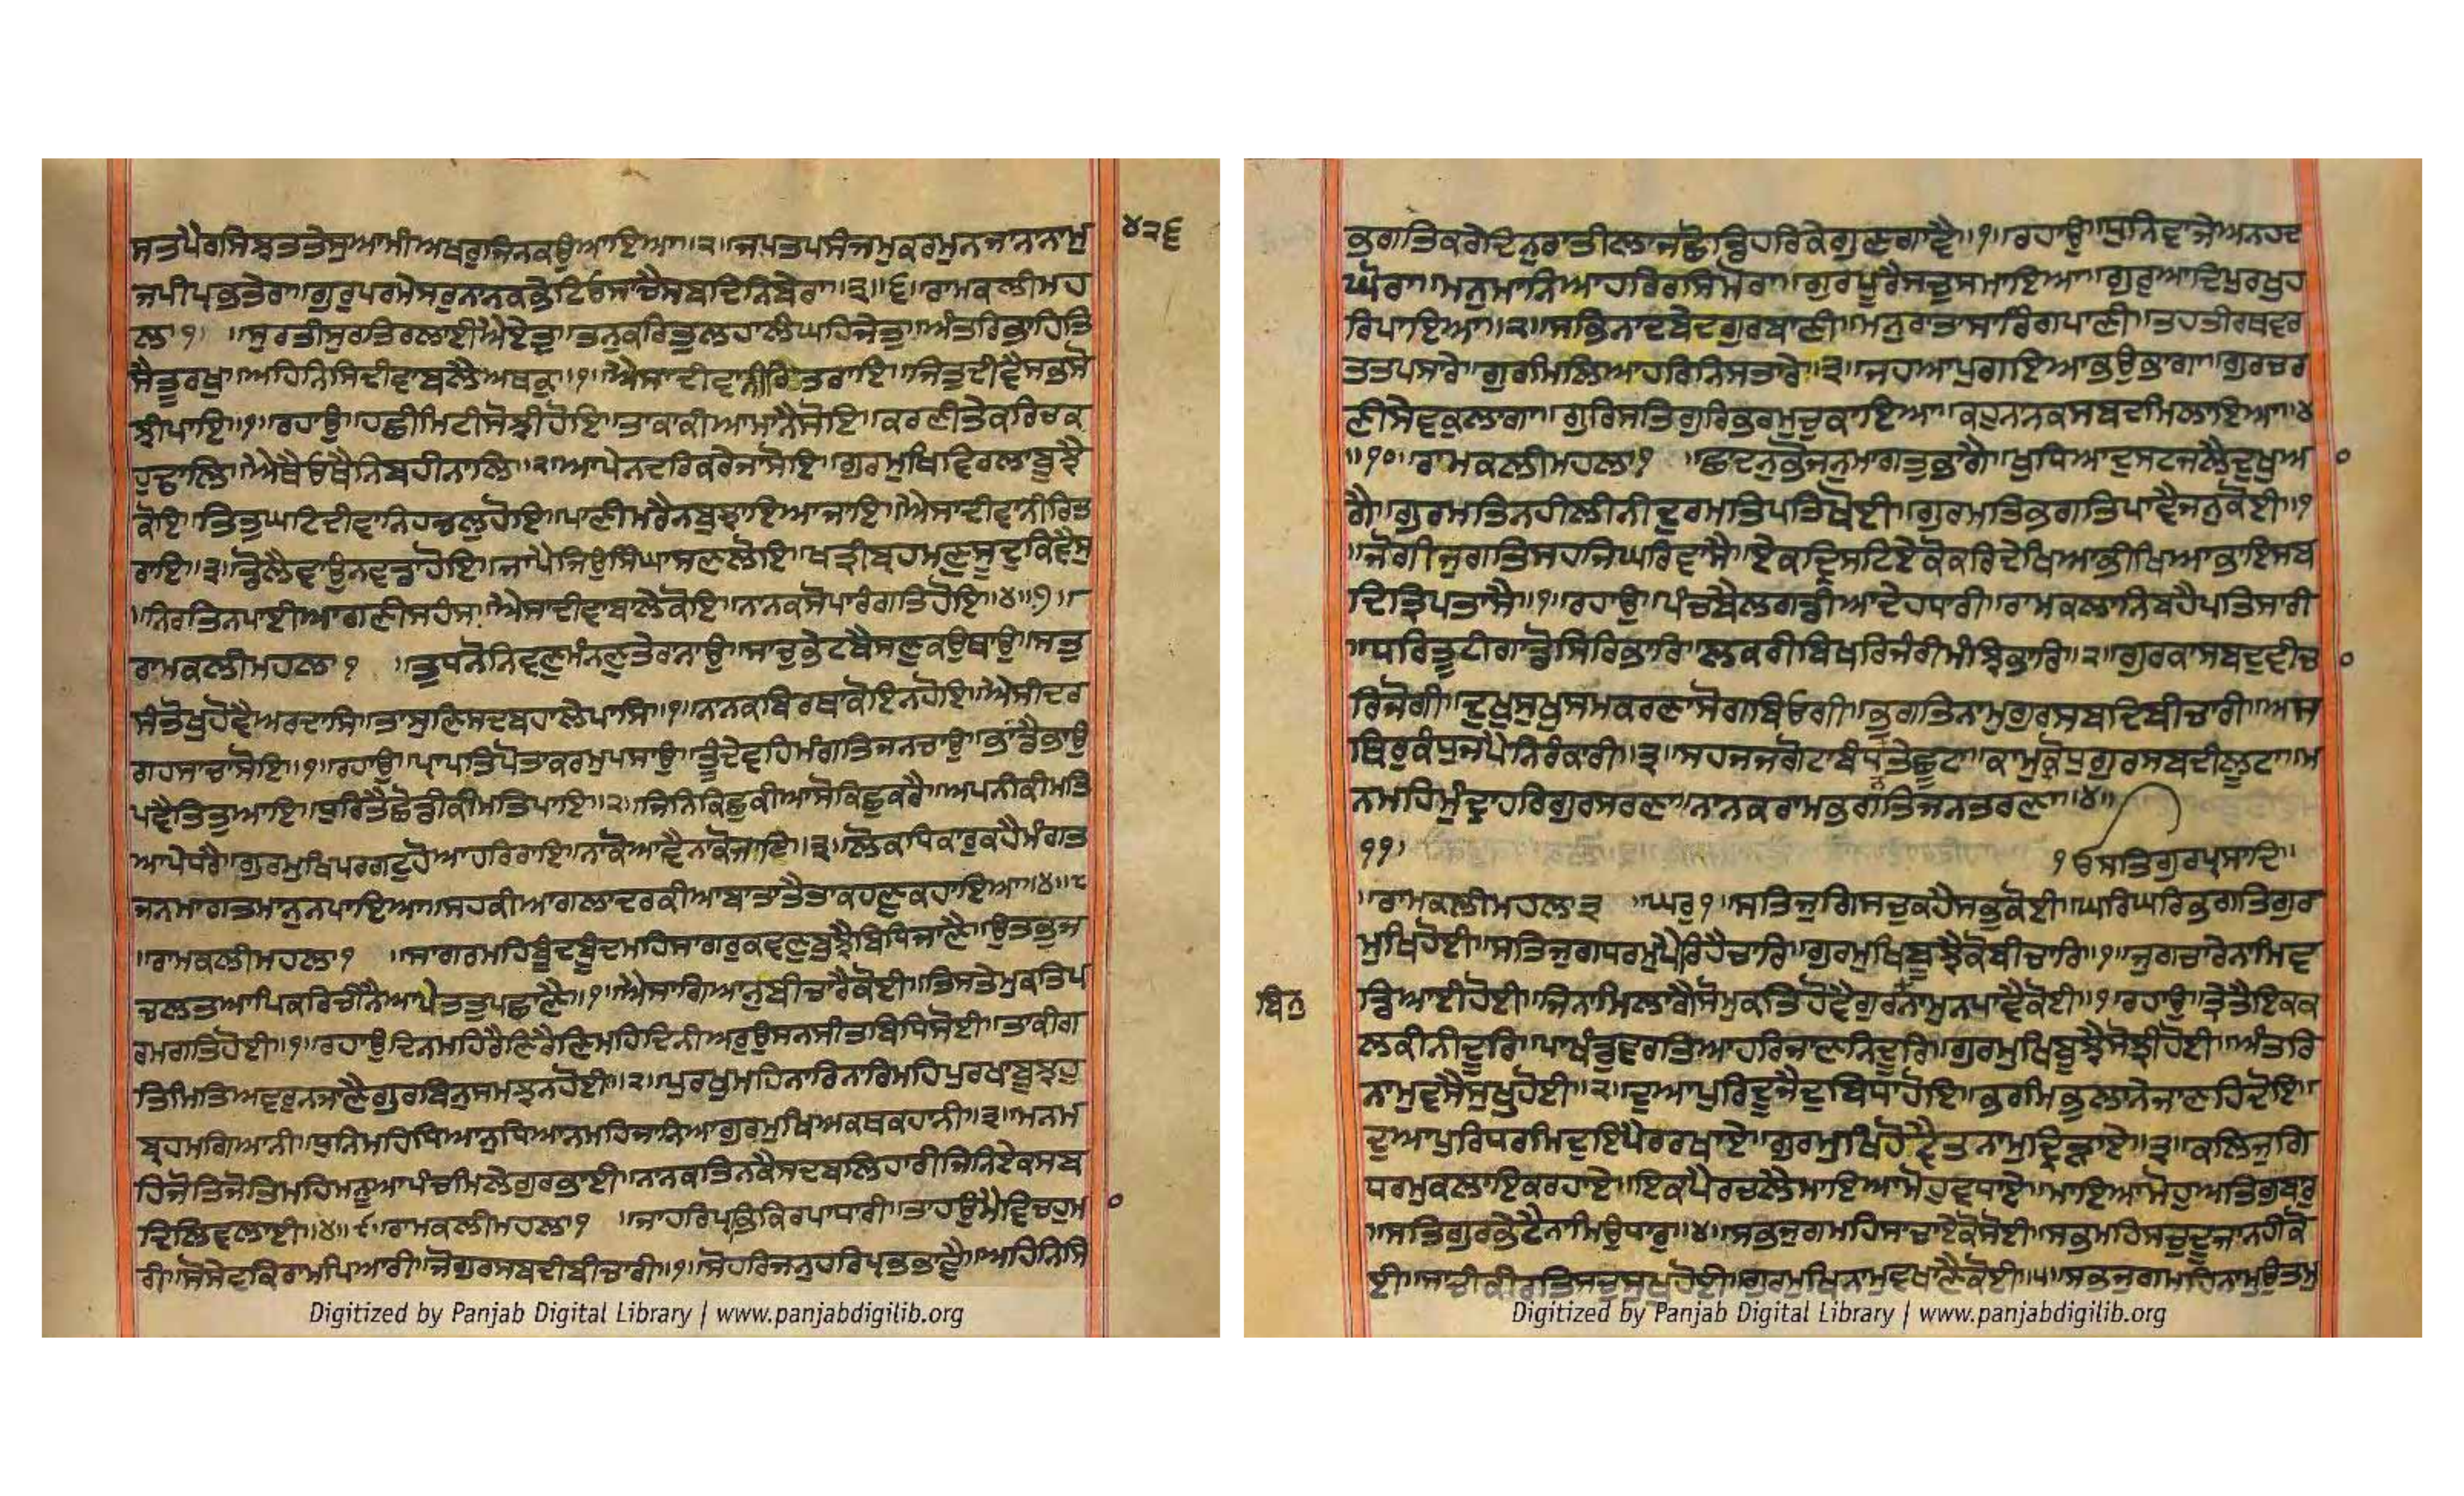 ਸਤਪੈਰਸਿਬੂਤਤੇਸੁਆਮੀਅਖਰੁਜਿਨਕਉਆਇਆ॥੨॥ਜਪਤਪਸੰਜਮੁਕਰਮੁਨਜਾਨਾਨਾਮੁ
੪੨੬
ਜਪੀਪ੍ਰਭਤੇਰਾ॥ਗੁਰੁਪਰਮੇਸਰੁਨਾਨਕਭੇਟਿਓਸਾਚੈਸਬਦਿਨਿਬੇਰਾ॥੩॥੬॥ਰਾਮਕਲੀਮਹ
ਲਾ੧ ॥ਸੁਰਤੀਸੁਰਤਿਰਲਾਈਐਏਤੁ॥ਤਨੁਕਰਿਤੁਲਹਾਲੰਘਹਿਜੇਤੁ॥ਅੰਤਰਿਭਾਹਿਤਿ
ਸੈਤੂਰਖੁ॥ਅਹਿਨਿਸਿਦੀਵਾਬਲੈਅਥਕੁ॥੧॥ਐਸਾਦੀਵਾਨੀਰਿਤਰਾਇ॥ਜਿਤੁਦੀਵੈਸਭਸੋ
ਝੀਪਾਇ॥੧॥ਰਹਾਉ॥ਹਛੀਮਿਟੀਸੋਝੀਹੋਇ॥ਤਾਕਾਕੀਆਮਾਨੈਸੋਇ॥ਕਰਣੀਤੇਕਰਿਚਕ
ਹੁਢਾਲਿ॥ਐਥੈਓਥੈਨਿਬਹੀਨਾਲਿ॥੨॥ਆਪੇਨਦਰਿਕਰੇਜਾਸੋਇ॥ਗੁਰਮੁਖਿਵਿਰਲਾਬੁਝੈ
ਕੋਇ॥ਤਿਤੁਘਟਿਦੀਵਾਨਿਹਚਲੁਹੋਇ॥ਪਾਣੀਮਰੈਨਬੁਝਾਇਆਜਾਇ॥ਐਸਾਦੀਵਾਨੀਰਿਤ
ਰਾਇ॥੩॥ਡੋਲੈਵਾਉਨਵਡਾਹੋਇ॥ਜਾਪੈਜਿਉਸਿੰਘਾਸਣਲੋਇ॥ਖੜੀਬ੍ਰਹਮਣੁਸੂਦੁਕਿਵੈਸੁ
॥ਨਿਰਤਿਨਪਾਈਆਗਣੀਸਹੰਸ॥ਐਸਾਦੀਵਾਬਲੇਕੋਇ॥ਨਾਨਕਸੋਪਾਰੰਗਤਿਹੋਇ॥੪॥੭॥
ਰਾਮਕਲੀਮਹਲਾ੧ ॥ਤੁਧਨੋਨਿਵਣੁਮੰਨਣੁਤੇਰਾਨਾਉ॥ਸਾਚੁਭੇਟਬੈਸਣਕਉਥਾਉ॥ਸਤੁ
ਸੰਤੋਖੁਹੋਵੈਅਰਦਾਸਿ॥ਤਾਸੁਣਿਸਦਬਹਾਲੇਪਾਸਿ॥੧॥ਨਾਨਕਬਿਰਥਾਕੋਇਨਹੋਇ॥ਐਸੀਦਰ
ਗਹਸਾਚਾਸੋਇ॥੧॥ਰਹਾਉ॥ਪ੍ਰਾਪਤਿਪੋਤਾਕਰਮੁਪਸਾਉ॥ਤੂਦੇਵਹਿਮੰਗਤਿਜਨਚਾਉ॥ਭਾਂਡੈਭਾਉ
ਪਵੈਤਿਤੁਆਇ॥ਧੁਰਿਤੈਛੋਡੀਕੀਮਤਿਪਾਇ॥੨॥ਜਿਨਿਕਿਛੁਕੀਆਸੋਕਿਛੁਕਰੈ॥ਅਪਨੀਕੀਮਤਿ
ਆਪੇਧਰੈ॥ਗੁਰਮੁਖਿਪਰਗਟੁਹੋਆਹਰਿਰਾਇ॥ਨਾਕੋਆਵੈਨਾਕੋਜਾਇ॥੩॥ਲੋਕਧਿਕਾਰੁਕਹੈਮੰਗਤ
ਜਨਮਾਗਤਮਾਨੁਨਪਾਇਆ॥ਸਹਕੀਆਗਲਾਦਰਕੀਆਬਾਤਾਤੈਤਾਕਹਣੁਕਹਾਇਆ॥੪॥੮
॥ਰਾਮਕਲੀਮਹਲਾ੧ ॥ਸਾਗਰਮਹਿਬੂੰਦਬੂੰਦਮਹਿਸਾਗਰੁਕਵਣੁਬੁਝੈਬਿਧਿਜਾਣੈ॥ਉਤਭੁਜ
ਚਲਤਆਪਿਕਰਿਚੀਨੈਆਪੇਤਤੁਪਛਾਣੈ॥੧॥ਐਸਾਗਿਆਨੁਬੀਚਾਰੈਕੋਈ॥ਤਿਸਤੇਮੁਕਤਿਪ
ਰਮਗਤਿਹੋਈ॥੧॥ਰਹਾਉ॥ਦਿਨਮਹਿਰੈਣਿਰੈਣਿਮਹਿਦਿਨੀਅਰੁਉਸਨਸੀਤਬਿਧਿਸੋਈ॥ਤਾਕੀਗ
ਤਿਮਿਤਿਅਵਰੁਨਜਾਣੈਗੁਰਬਿਨੁਸਮਝਨਹੋਈ॥੨॥ਪੁਰਖੁਮਹਿਨਾਰਿਨਾਰਿਮਹਿਪੁਰਖਾਬੂਝਹੁ
ਬ੍ਰਹਮਗਿਆਨੀ॥ਧੁਨਿਮਹਿਧਿਆਨੁਧਿਆਨਮਹਿਜਾਨਿਆਗੁਰਮੁਖਿਅਕਥਕਹਾਨੀ॥੩॥ਮਨਮ
ਹਿਜੋਤਿਜੋਤਿਮਹਿਮਨੂਆਪੰਚਮਿਲੇਗੁਰਭਾਈ॥ਨਾਨਕਤਿਨਕੈਸਦਬਲਿਹਾਰੀਜਿਨਿਏਕਸਬ
ਦਿਲਿਵਲਾਈ॥੪॥੯॥ਰਾਮਕਲੀਮਹਲਾ੧ ॥ਜਾਹਰਿਪ੍ਰਭਿਕਿਰਪਾਧਾਰੀ॥ਤਾਹਉਮੈਵਿਚਹੁਮ
ਰੀ॥ਸੋਸੇਵਕਿਰਾਮਪਿਆਰੀ॥ਜੋਗੁਰਸਬਦੀਬੀਚਾਰੀ॥੧॥ਸੋਹਰਿਜਨੁਹਰਿਪ੍ਰਭਭਾਵੈ॥ਅਹਿਨਿਸਿ
Digitized by Panjab Digital Library | www.panjabdigilib.org
ਭਗਤਿਕਰੇਦਿਨੁਰਾਤੀਲਾਜਛੋਡਿਹਰਿਕੇਗੁਣਗਾਵੈ॥੧॥ਰਹਾਉ॥ਧੁਨਿਵਾਜੇਅਨਹਦ
ਘੋਰਾ॥ਮਨੁਮਾਨਿਆਹਰਿਰਸਿਮੋਰਾ॥ਗੁਰਪੂਰੈਸਚੁਸਮਾਇਆ॥ਗੁਰੁਆਦਿਪੁਰਖੁਹ
ਰਿਪਾਇਆ॥੨॥ਸਭਿਨਾਦਬੇਦਗੁਰਬਾਣੀ॥ਮਨੁਰਾਤਾਸਾਰਿਗਪਾਣੀ॥ਤਹਤੀਰਥਵਰ
ਤਤਪਸਾਰੇ॥ਗੁਰਮਿਲਿਆਹਰਿਨਿਸਤਾਰੇ॥੩॥ਜਹਆਪੁਗਇਆਭਉਭਾਗਾ॥ਗੁਰਚਰ
ਣੀਸੇਵਕੁਲਾਗਾ॥ਗੁਰਿਸਤਿਗੁਰਿਭਰਮੁਚੁਕਾਇਆ॥ਕਹੁਨਾਨਕਸਬਦਿਮਿਲਾਇਆ॥੪
॥੧੦॥ਰਾਮਕਲੀਮਹਲਾ੧ ॥ਛਾਦਨੁਭੋਜਨੁਮਾਗਤੁਭਾਗੈ॥ਖੁਧਿਆਦੁਸਟਜਲੈਦੁਖੁਆ
ਗੈ॥ਗੁਰਮਤਿਨਹੀਲੀਨੀਦੁਰਮਤਿਪਤਿਖੋਈ॥ਗੁਰਮਤਿਭਗਤਿਪਾਵੈਜਨੁਕੋਈ॥੧
॥ਜੋਗੀਜੁਗਤਿਸਹਜਿਘਰਿਵਾਸੈ॥ਏਕਦ੍ਰਿਸਟਿਏਕੋਕਰਿਦੇਖਿਆਭੀਖਿਆਭਾਇਸਬ
ਦਿਤ੍ਰਿਪਤਾਸੈ॥੧॥ਰਹਾਉ॥ਪੰਚਬੈਲਗਡੀਆਦੇਹਧਾਰੀ॥ਰਾਮਕਲਾਨਿਬਹੈਪਤਿਸਾਰੀ
॥ਧਰਿਤੂਟੀਗਾਡੋਸਿਰਿਭਾਰਿ॥ਲਕਰੀਬਿਖਰਿਜਰੀਮੰਝਿਭਾਰਿ॥੨॥ਗੁਰਕਾਸਬਦੁਵੀਚਾ
ਰਿਜੋਗੀ॥ਦੁਖੁਸੁਖੁਸਮਕਰਣਾਸੋਗਬਿਓਗੀ॥ਭੁਗਤਿਨਾਮੁਗੁਰਸਬਦਿਬੀਚਾਰੀ॥ਅਸ
ਥਿਰੁਕੰਧੁਜਪੈਨਿਰੰਕਾਰੀ॥੩॥ਸਹਜਜਗੋਟਾਬੰਧਨਤੇਛੂਟਾ॥ਕਾਮੁਕ੍ਰੋਧੁਗੁਰਸਬਦੀਲੂਟਾ॥ਮ
ਨਮਹਿਮੁੰਦ੍ਰਾਹਰਿਗੁਰਸਰਣਾ॥ਨਾਨਕਰਾਮਭਗਤਿਜਨਤਰਣਾ॥੪॥
੧੧॥ ੧ੳਸਤਿਗੁਰਪ੍ਰਸਾਦਿ॥
॥ਰਾਮਕਲੀਮਹਲਾ੩ ॥ਘਰੁ੧॥ਸਤਿਜੁਗਿਸਚੁਕਹੈਸਭੁਕੋਈ॥ਘਰਿਘਰਿਭਗਤਿਗੁਰ
ਮੁਖਿਹੋਈ॥ਸਤਿਜੁਗਧਰਮੁਪੈਰਹੈਚਾਰਿ॥ਗੁਰਮੁਖਿਬੂਝੈਕੋਬੀਚਾਰਿ॥੧॥ਜੁਗਚਾਰੇਨਾਮਿਵ
ਬਿਨੁ
ਡਿਆਈਹੋਈ॥ਜਿਨਾਮਿਲਾਗੈਸੋਮੁਕਤਿਹੋਵੈਗੁਰਨਾਮੁਨਪਾਵੈਕੋਈ॥੧॥ਰਹਾਉ॥ਤ੍ਰੇਤੈਇਕਕ
ਲਕੀਨੀਦੂਰਿ॥ਪਾਖੰਡੁਵਰਤਿਆਹਰਿਜਾਣਨਿਦੂਰਿ॥ਗੁਰਮੁਖਿਬੂਝੈਸੋਝੀਹੋਈ॥ਅੰਤਰਿ
ਨਾਮੁਵਸੈਸੁਖੁਹੋਈ॥੨॥ਦੁਆਪੁਰਿਦੂਜੈਦੁਬਿਧਾਹੋਇ॥ਭਰਮਿਭੁਲਾਨੇਜਾਣਹਿਦੋਇ॥
ਦੁਆਪੁਰਿਧਰਮਿਦੁਇਪੈਰਰਖਾਏ॥ਗੁਰਮੁਖਿਹੋਵੈਤਨਾਮੁਦ੍ਰਿੜਾਏ॥੩॥ਕਲਿਜੁਗਿ
ਧਰਮੁਕਲਾਇਕਰਹਾਏ॥ਇਕਪੈਰਚਲੈਮਾਇਆਮੋਹੁਵਧਾਏ॥ਮਾਇਆਮੋਹੁਅਤਿਗੁਬਾਰੁ
॥ਸਤਿਗੁਰਭੇਟੈਨਾਮਿਉਧਾਰੁ॥੪॥ਸਭਜੁਗਮਹਿਸਾਚਾਏਕੋਸੋਈ॥ਸਭਮਹਿਸਚੁਦੂਜਾਨਹੀਕੋ
ਈ॥ਸਾਚੀਕੀਰਤਿਸਚੁਸੁਖੁਹੋਈ॥ਗੁਰਮੁਖਿਨਾਮੁਵਖਾਣੈਕੋਈ॥੫॥ਸਭਜੁਗਮਹਿਨਾਮੁਊਤਮੁ
Digitized by Panjab Digital Library | www.panjabdigilib.org